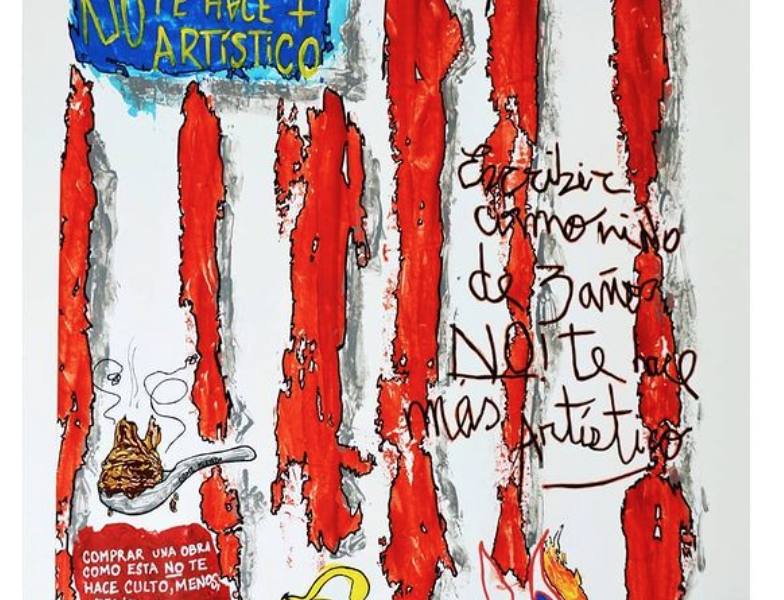 NO TE HACE +
ARTÍSTICO
Escribir
como niño
de 3 años
NO! te hace
más artístico
COMPRAR UNA OBRA
COMO ESTA NO TE
HACE CULTO, MENOS,